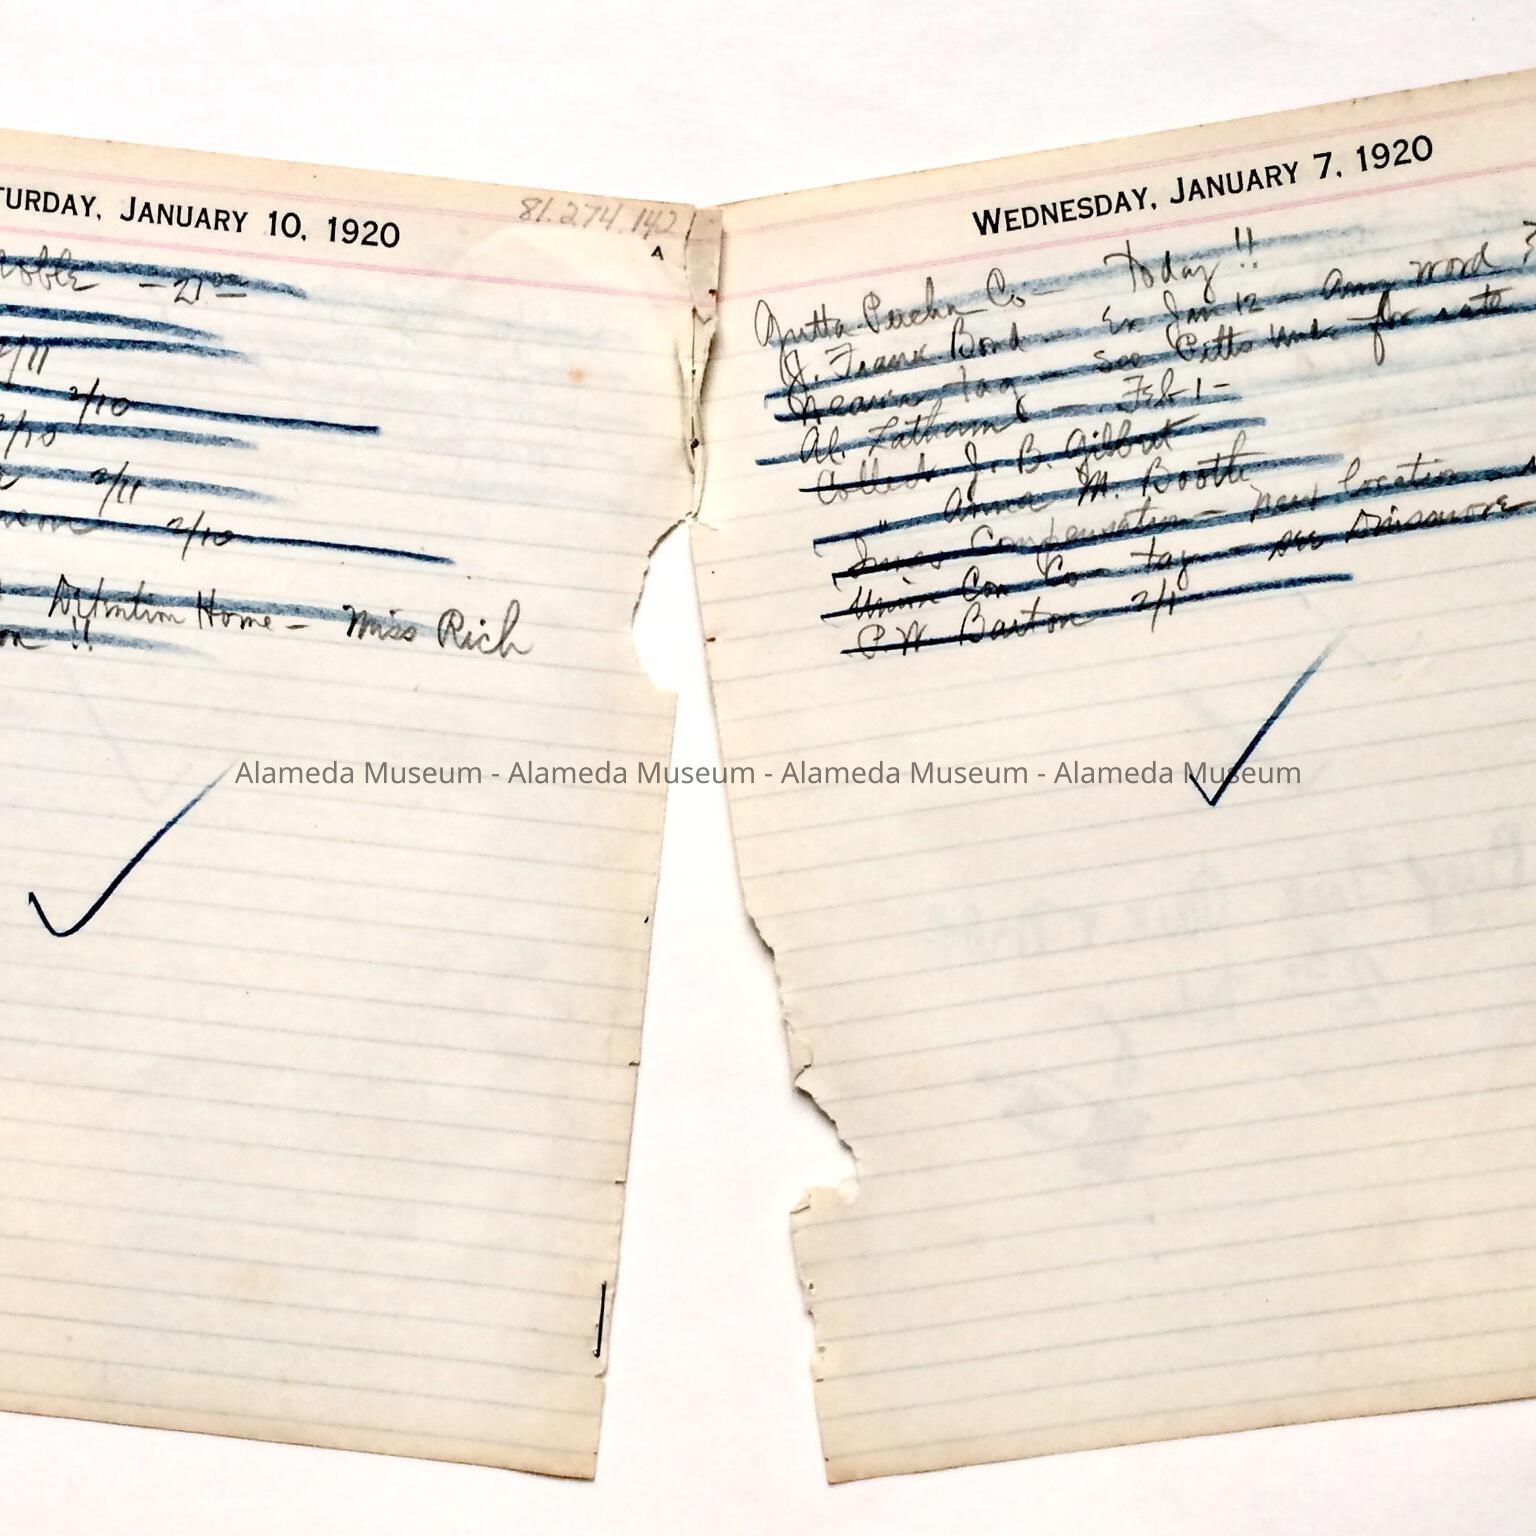 TURDAY, JANUARY 10, 1920
81.274.142
A
oble - 21 00
2/11
2/10
2/10
2/11
2/10
Detention Home - Miss Rich
on !!
WEDNESDAY, JANUARY 7, 1920
Gutta Percha Co - Today !!
J. Frank Bond - Ex Jan 12 - Any word ?
tag - See Pitts for rate
Al. Latham - Feb 1 -
Collect J. B. Gilbert
" Anna M. Booth
Compensation - new location -
Union Con Co - tag - see Dinsmore
P. W Barton 2/1
Alameda Museum - Alameda Museum - Alameda Museum - Alameda Museum